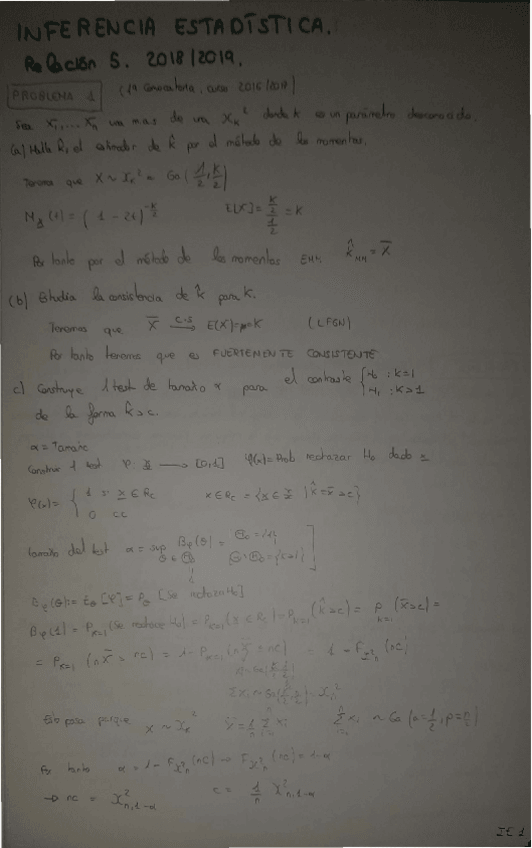 INFERENCIA ESTADÍSTICA.
Relación 5. 2018/2019.
PROBLEMA 1 (1ª Convocatoria, curso 2016/2017)
Sea X₁,...Xₙ una mas de una χₖ² donde k es un parámetro desconocido.
(a) Halla k̂, el estimador de k por el método de los momentos.
Tenemos que X ~ χₖ² = Ga(1/2, k/2)
M (t) = (1 - 2t)^(-k/2) E[X] = (k/2)/(1/2) = k
Por tanto por el método de los momentos EMM k̂_MM = X̄
(b) Estudia la consistencia de k̂ para k.
Tenemos que X̄ —c.s→ E(X)=μ=k (LFGN)
Por tanto tenemos que es FUERTEMENTE CONSISTENTE
c) Construye 1 test de tamaño α para el contraste { H₀ : k=1 H₁ : k>1
de la forma k̂>c.
α = Tamaño
Construir 1 test φ: → [0,1] φ(x)= Prob rechazar H₀ dado x
φ(x)= { 1 si x ∈ RC 0 cc
tamaño del test α = sup β_φ(θ)
β_φ(θ) = E_θ[φ] = P_θ [Se rechaza H₀]
β_φ(1) = P_{k=1}(Se rechace H₀) = P_{k=1}(x ∈ RC) = P_{k=1}(k̂>c) = P_{k=1}(X̄>c) =
= P_{k=1}(nX̄ > nc) = 1 - P_{k=1}(nX̄ ≤ nc) = 1 - F_{χ²ₙ}(nc)
Esto pasa porque X ~ χₖ² X̄ = 1/n Σ xᵢ Σ xᵢ ~ Ga(a=1/2, p=n/2)
Por tanto α = 1 - F_{χ²ₙ}(nc) → F_{χ²ₙ}(nc) = 1-α
→ nc = χ²_{n,1-α} c = 1/n χ²_{n,1-α}
IE 1